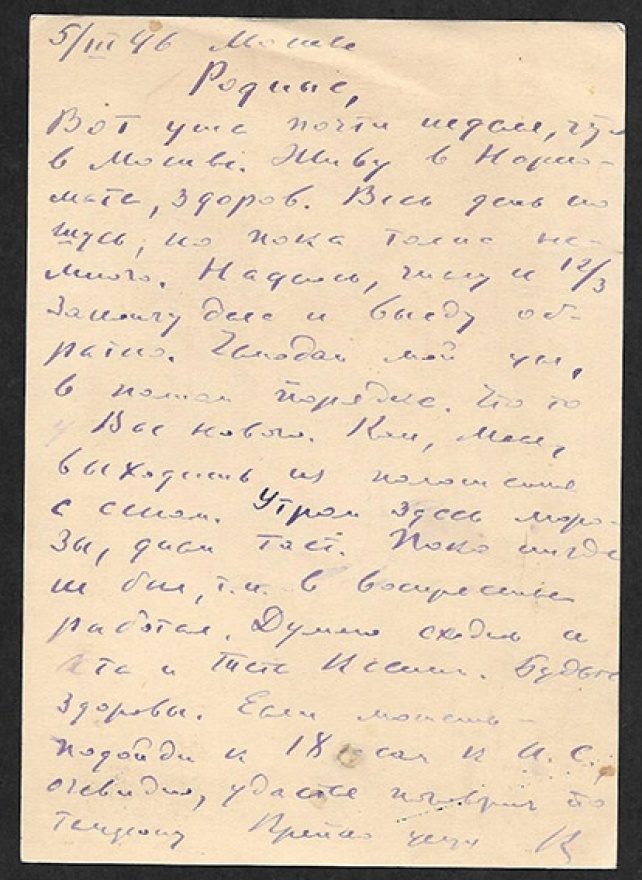 5/III 46 Москва
Родные,
Вот уже почти неделя,
в Москве. Живу в
здоров. Весь день но
шусь, но пока толку не-
много. Надеюсь, числу к 12/3
закончу дела и выеду об-
ратно. Чемодан мой цел,
в полном порядке. Что то
у Вас нового. Как, Мая,
выходишь из положения
с сеном. Утром здесь моро-
зы, днем тает. Пока нигде
не был, т.к. в воскресенье
работал. Думаю сходить к
и Будьте
здоровы. Если можешь -
подойди к 18 часам к И. С.,
очевидно, удастся поговорить по
телефону Крепко целую